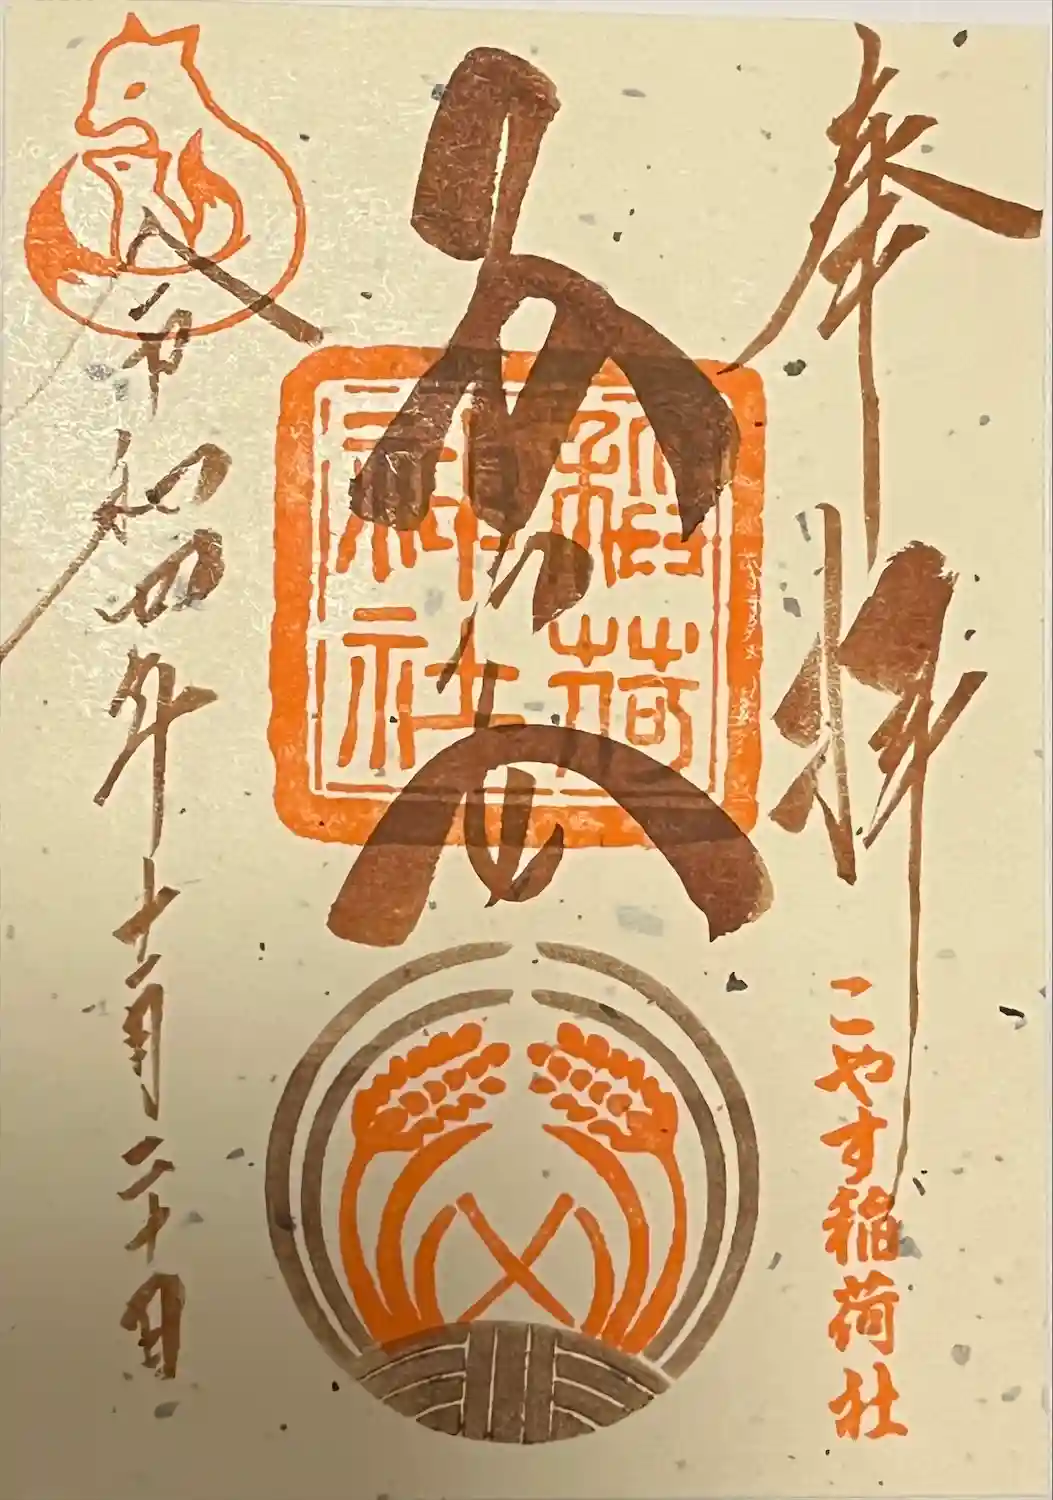 奉拝
こやす稲荷社
稲荷
神社
令和四年十二月二十日